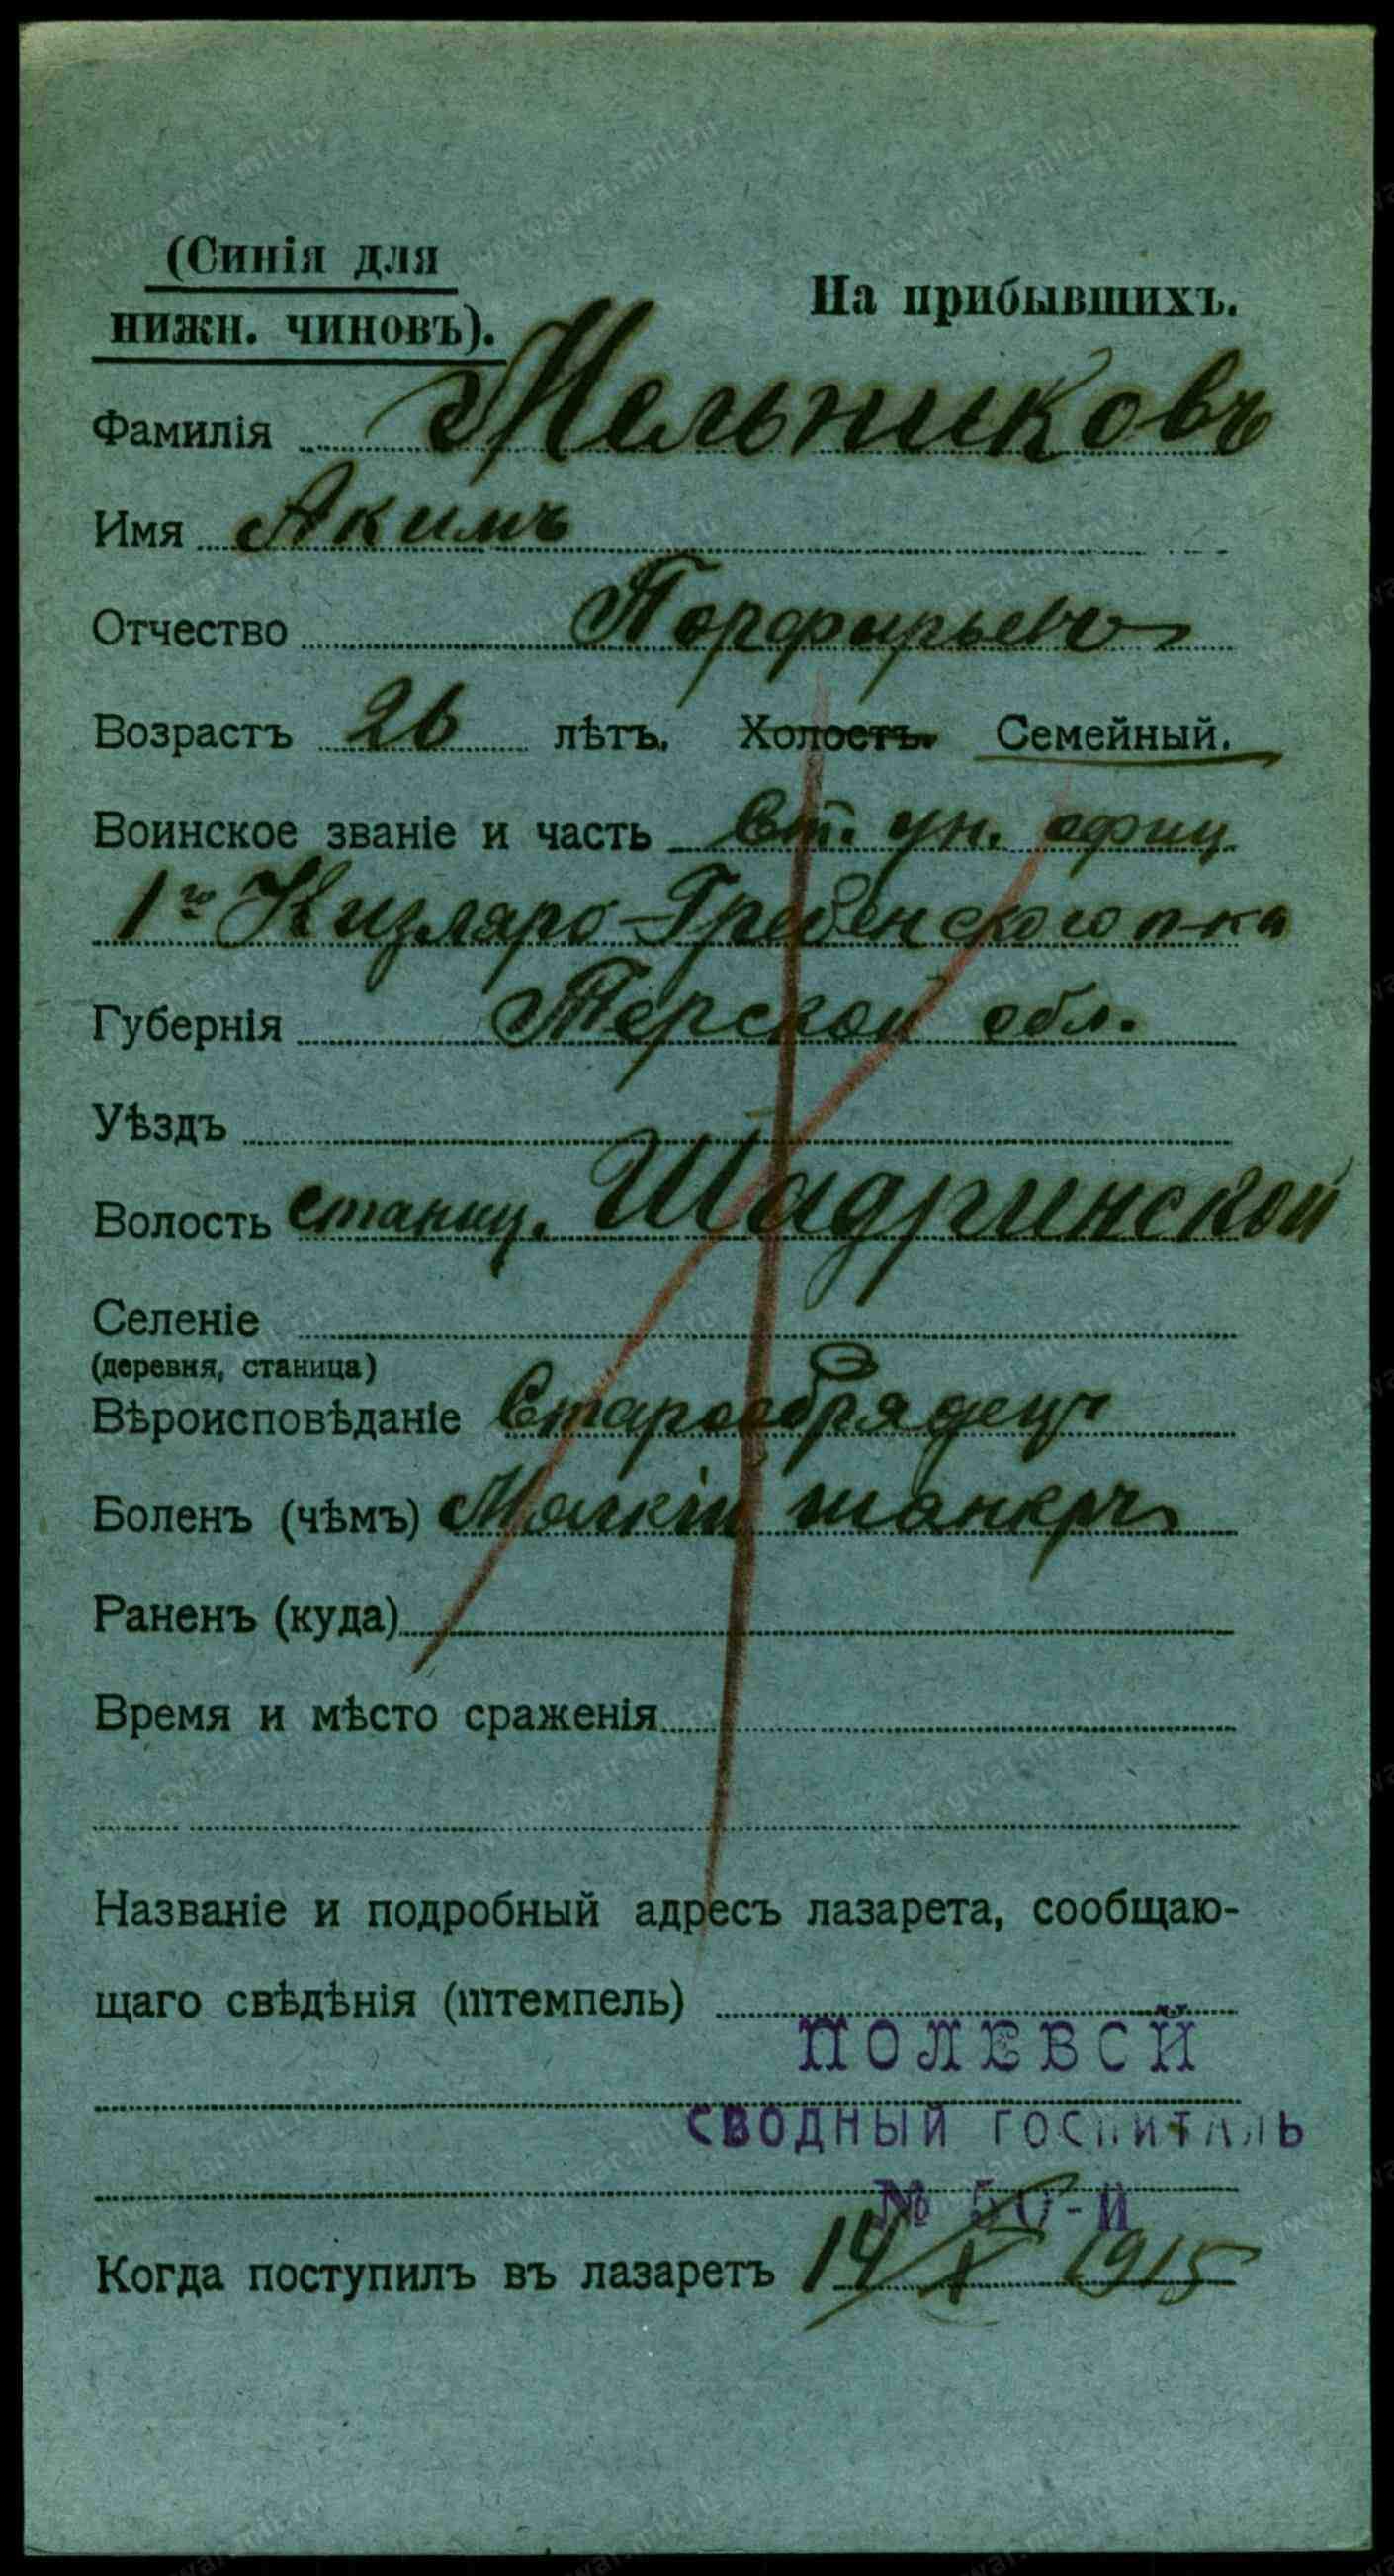 (Синія для
нижн. чиновъ).
На прибывшихъ.
Фамилія Мельниковъ
Имя Акимъ
Отчество Порфирьевъ
Возрастъ 26 лѣтъ. Холостъ. Семейный.
Воинское званіе и часть Ст. ун. офиц.
1го Кизляро-Гребенского п-ка
Губернія Терской обл.
Уѣздъ
Волость станиц. Шадринской
Селеніе
(деревня, станица)
Вѣроисповѣданіе Старообрядецъ
Боленъ (чѣмъ) Мягкій шанкръ
Раненъ (куда)
Время и мѣсто сраженія
Названіе и подробный адресъ лазарета, сообщаю-
щаго свѣдѣнія (штемпель)
ПОЛЕВОЙ
СВОДНЫЙ ГОСПИТАЛЬ
№ 50-й
Когда поступилъ въ лазаретъ 14/X 1915